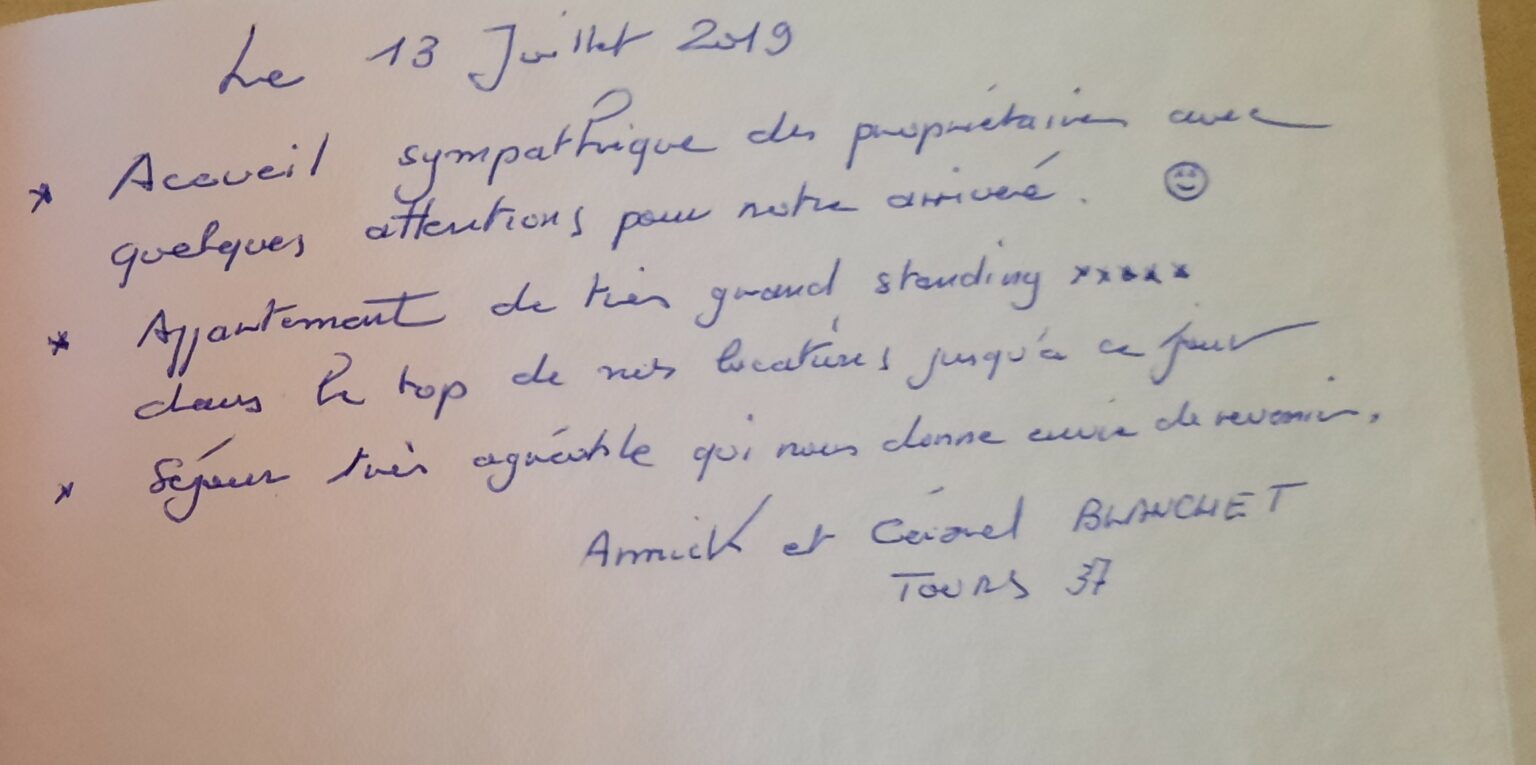 Le 13 Juillet 2019
* Accueil sympathique des propriétaires avec
quelques attentions pour notre arrivée. ☺
* Appartement de très grand standing *****
dans le top de nos locations jusqu'à ce jour
* Séjour très agréable qui nous donne envie de revenir.
Annick et BLANCHET
TOURS 37